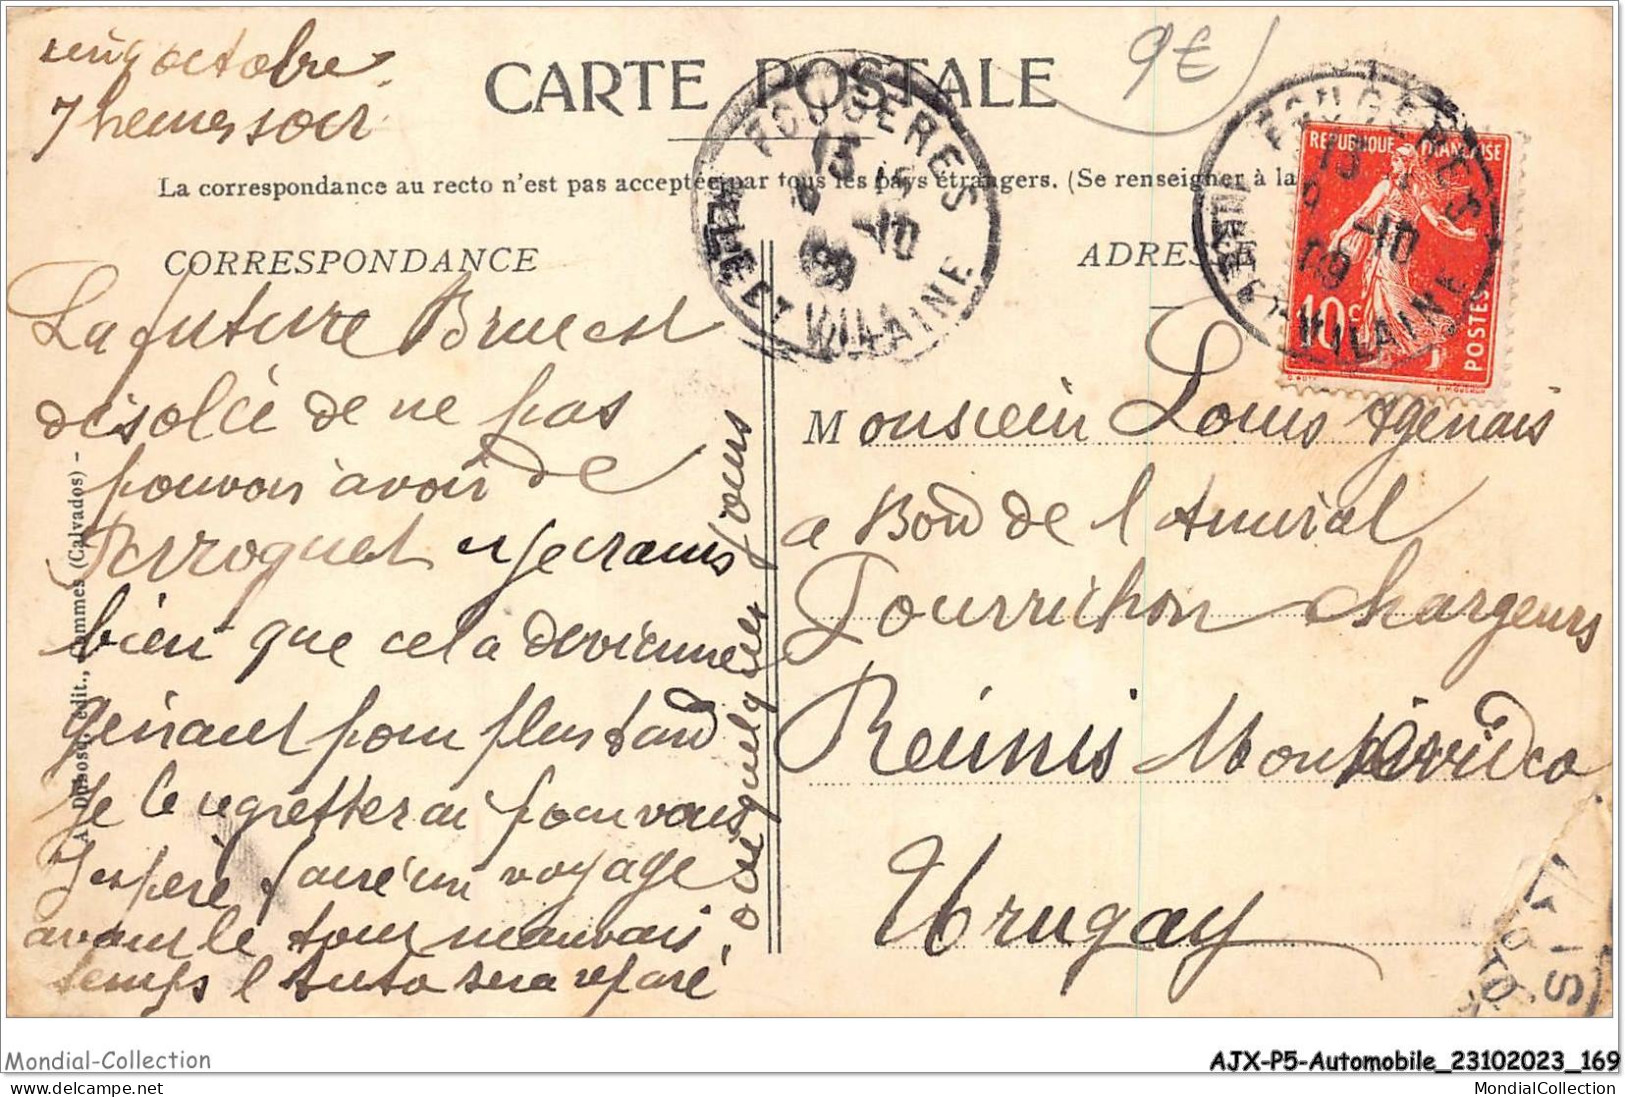 cinq octobre
7 heures soir
9€
CARTE POSTALE
La correspondance au recto n'est pas acceptée par tous les pays étrangers. (Se renseigner à la
CORRESPONDANCE
ADRESSE
FOUGERES
15
5 -10
09
ILLE ET VILAINE
FOUGERES
15
5 -10
09
ILLE-ET-VILAINE
REPUBLIQUE FRANÇAISE
10c
POSTES
La future Bru est
désolée de ne pas
pouvoir avoir de
Perroquet et je crains
bien que cela devienne
gênant pour plus tard
Je le regretterai pour vous
J espère faire un voyage
avant le mauvais
temps l Auto sera réparé
quelques jours
Monsieur Louis Agenais
a Bord de l Amiral
Fourrichon Chargeurs
Réunis Montevideo
Urugay
A. Dubosq, édit., (Calvados) -
Mondial-Collection
AJX-P5-Automobile_23102023_169
www.delcampe.net
MondialCollection